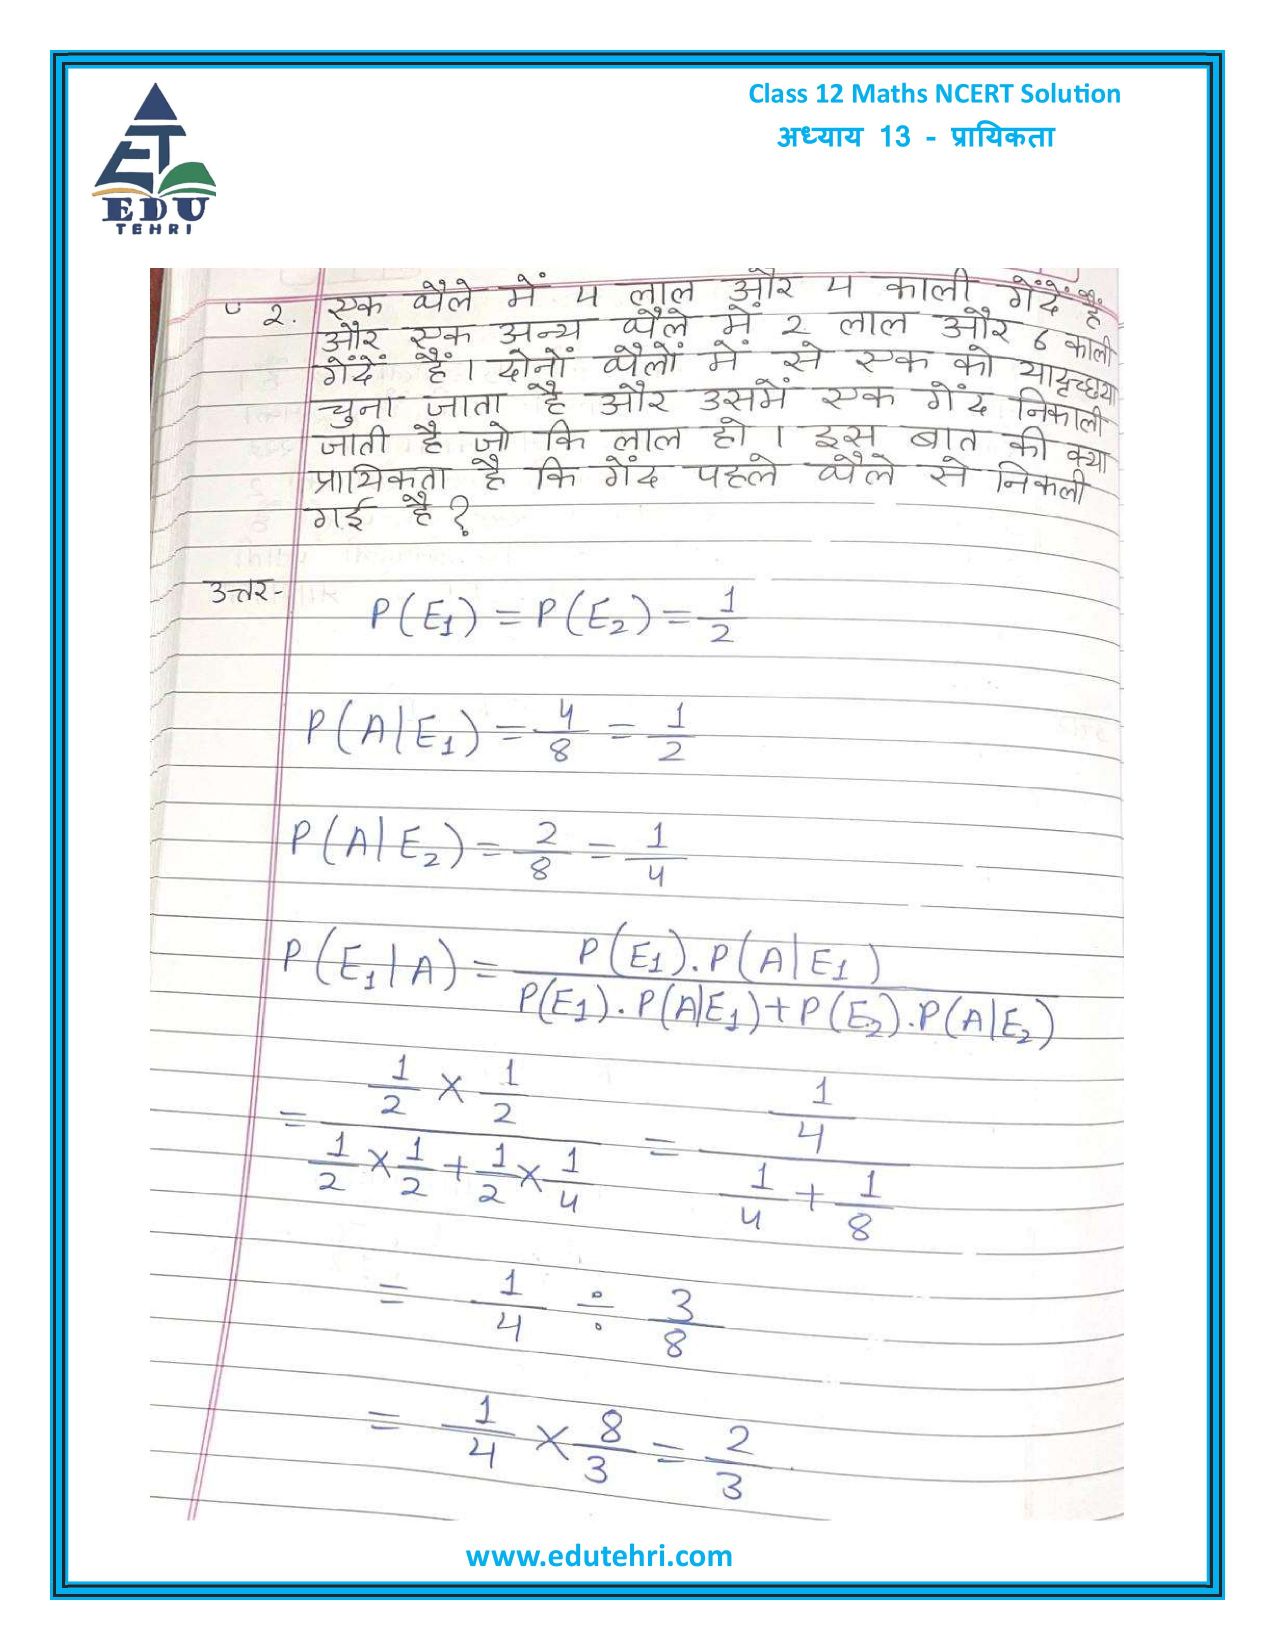 Class 12 Maths NCERT Solution
अध्याय 13 - प्रायिकता
EDU
TEHRI
2. एक थैले में 4 लाल और 4 काली गेंदें हैं
और एक अन्य थैले में 2 लाल और 6 काली
गेंदें हैं। दोनों थैलों में से एक को यादृच्छया
चुना जाता है और उसमें एक गेंद निकाली
जाती है जो कि लाल हो। इस बात की क्या
प्रायिकता है कि गेंद पहले थैले से निकली
गई है?
उत्तर-
P(E₁) = P(E₂) = 1/2
P(A|E₁) = 4/8 = 1/2
P(A|E₂) = 2/8 = 1/4
P(E₁|A) = P(E₁).P(A|E₁) / P(E₁).P(A|E₁)+P(E₂).P(A|E₂)
= (1/2 × 1/2) / (1/2 × 1/2 + 1/2 × 1/4) = (1/4) / (1/4 + 1/8)
= 1/4 ÷ 3/8
= 1/4 × 8/3 = 2/3
www.edutehri.com